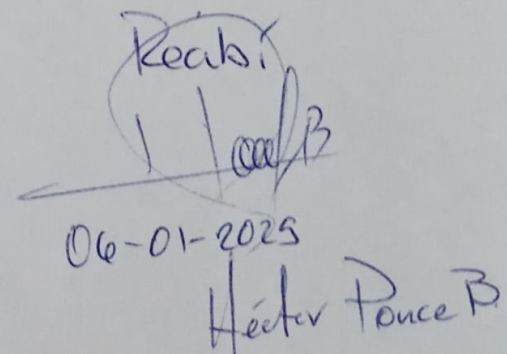 Recibí
06-01-2025
Héctor Ponce B